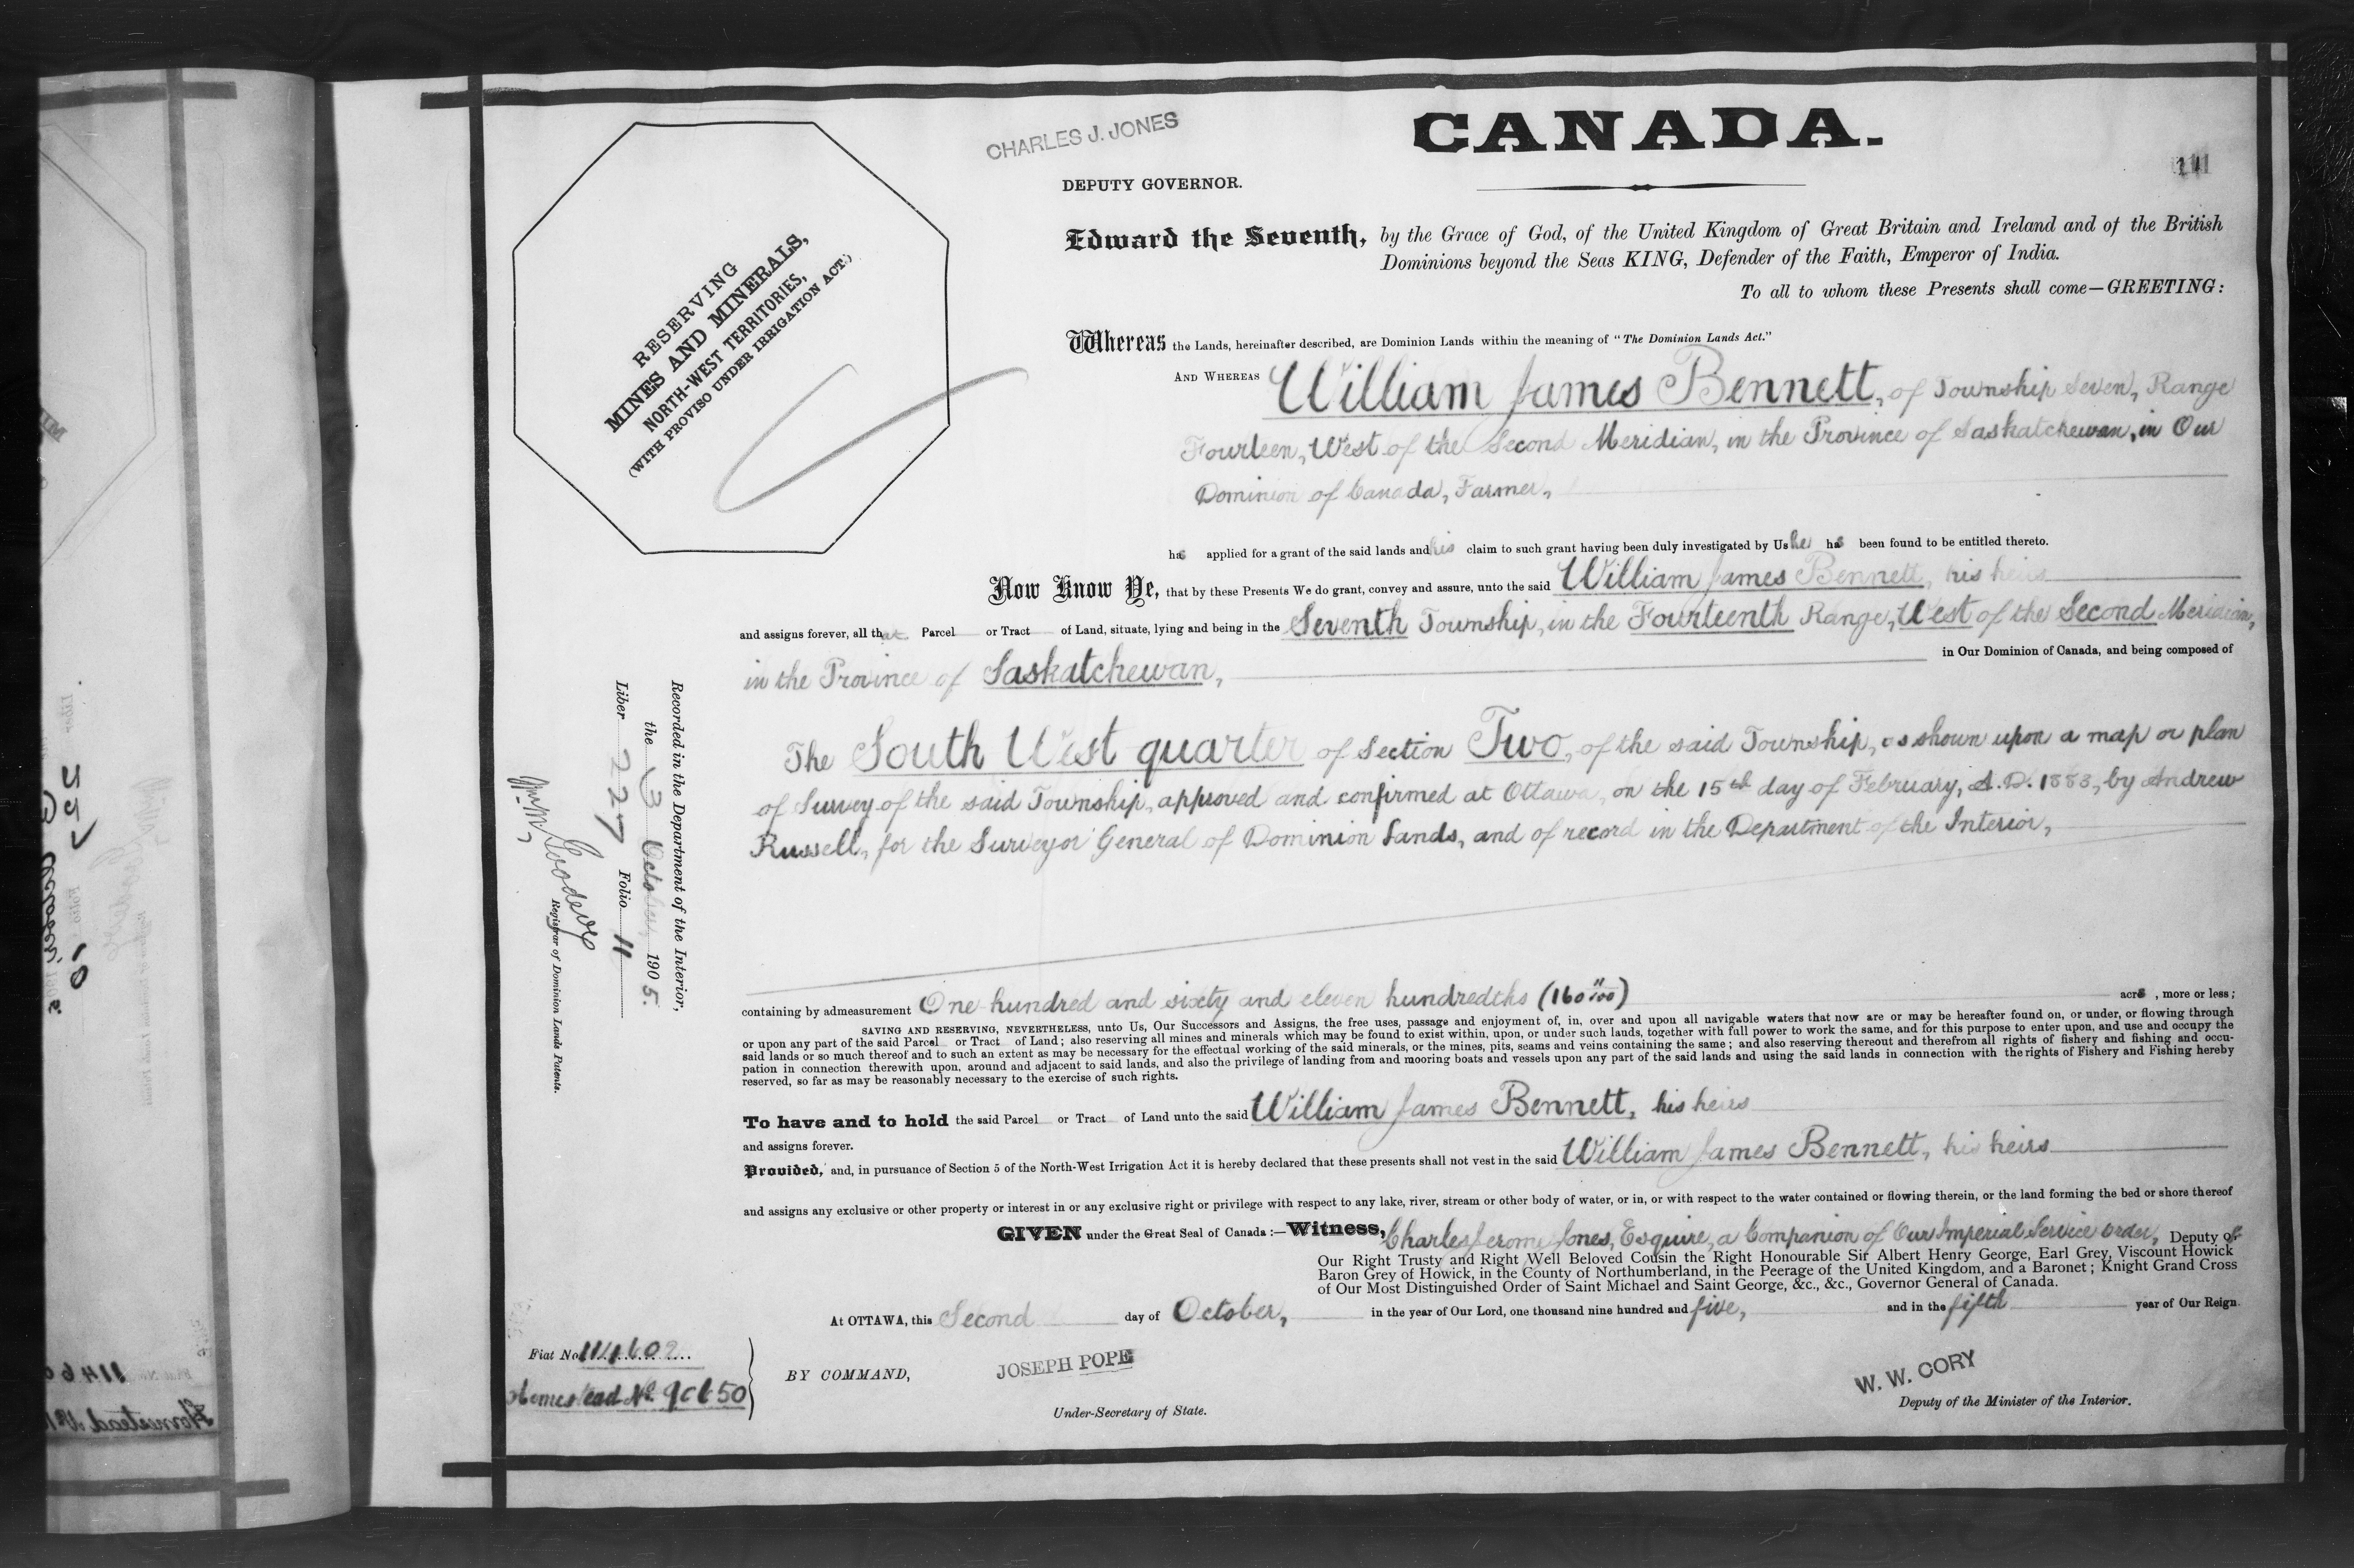 CHARLES J. JONES
CANADA.
DEPUTY GOVERNOR.
RESERVING
MINES AND MINERALS,
NORTH-WEST TERRITORIES,
(WITH PROVISO UNDER IRRIGATION ACT.)
Edward the Seventh, by the Grace of God, of the United Kingdom of Great Britain and Ireland and of the British
Dominions beyond the Seas KING, Defender of the Faith, Emperor of India.
To all to whom these Presents shall come—GREETING:
Whereas the Lands, hereinafter described, are Dominion Lands within the meaning of "The Dominion Lands Act."
AND WHEREAS William James Bennett, of Township Seven, Range
Fourteen, West of the Second Meridian, in the Province of Saskatchewan, in Our
Dominion of Canada, Farmer,
has applied for a grant of the said lands and his claim to such grant having been duly investigated by Us he has been found to be entitled thereto.
Now Know Ye, that by these Presents We do grant, convey and assure, unto the said William James Bennett, his heirs
and assigns forever, all that Parcel or Tract of Land, situate, lying and being in the Seventh Township, in the Fourteenth Range, West of the Second Meridian,
in the Province of Saskatchewan, in Our Dominion of Canada, and being composed of
The South West quarter of Section Two, of the said Township, as shown upon a map or plan
of Survey of the said Township, approved and confirmed at Ottawa, on the 15th day of February, A.D. 1883, by Andrew
Russell, for the Surveyor General of Dominion Lands, and of record in the Department of the Interior,
containing by admeasurement One hundred and sixty and eleven hundredths (160 11/100) acres, more or less;
SAVING AND RESERVING, NEVERTHELESS, unto Us, Our Successors and Assigns, the free uses, passage and enjoyment of, in, over and upon all navigable waters that now are or may be hereafter found on, or under, or flowing through
or upon any part of the said Parcel or Tract of Land; also reserving all mines and minerals which may be found to exist within, upon, or under such lands, together with full power to work the same, and for this purpose to enter upon, and use and occupy the
said lands or so much thereof and to such an extent as may be necessary for the effectual working of the said minerals, or the mines, pits, seams and veins containing the same; and also reserving thereout and therefrom all rights of fishery and fishing and occu-
pation in connection therewith upon, around and adjacent to said lands, and also the privilege of landing from and mooring boats and vessels upon any part of the said lands and using the said lands in connection with the rights of Fishery and Fishing hereby
reserved, so far as may be reasonably necessary to the exercise of such rights.
To have and to hold the said Parcel or Tract of Land unto the said William James Bennett, his heirs
and assigns forever.
Provided, and, in pursuance of Section 5 of the North-West Irrigation Act it is hereby declared that these presents shall not vest in the said William James Bennett, his heirs
and assigns any exclusive or other property or interest in or any exclusive right or privilege with respect to any lake, river, stream or other body of water, or in, or with respect to the water contained or flowing therein, or the land forming the bed or shore thereof
GIVEN under the Great Seal of Canada:—Witness, Charles Jerome Jones, Esquire, a Companion of Our Imperial Service Order, Deputy of
Our Right Trusty and Right Well Beloved Cousin the Right Honourable Sir Albert Henry George, Earl Grey, Viscount Howick
Baron Grey of Howick, in the County of Northumberland, in the Peerage of the United Kingdom, and a Baronet; Knight Grand Cross
of Our Most Distinguished Order of Saint Michael and Saint George, &c., &c., Governor General of Canada.
At OTTAWA, this Second day of October, in the year of Our Lord, one thousand nine hundred and five, and in the fifth year of Our Reign.
BY COMMAND,
JOSEPH POPE
Under-Secretary of State.
W. W. CORY
Deputy of the Minister of the Interior.
Fiat No.
Homestead No.
Recorded in the Department of the Interior,
the 3 October 1905.
Liber 227 Folio 11
Registrar of Dominion Lands Patents.